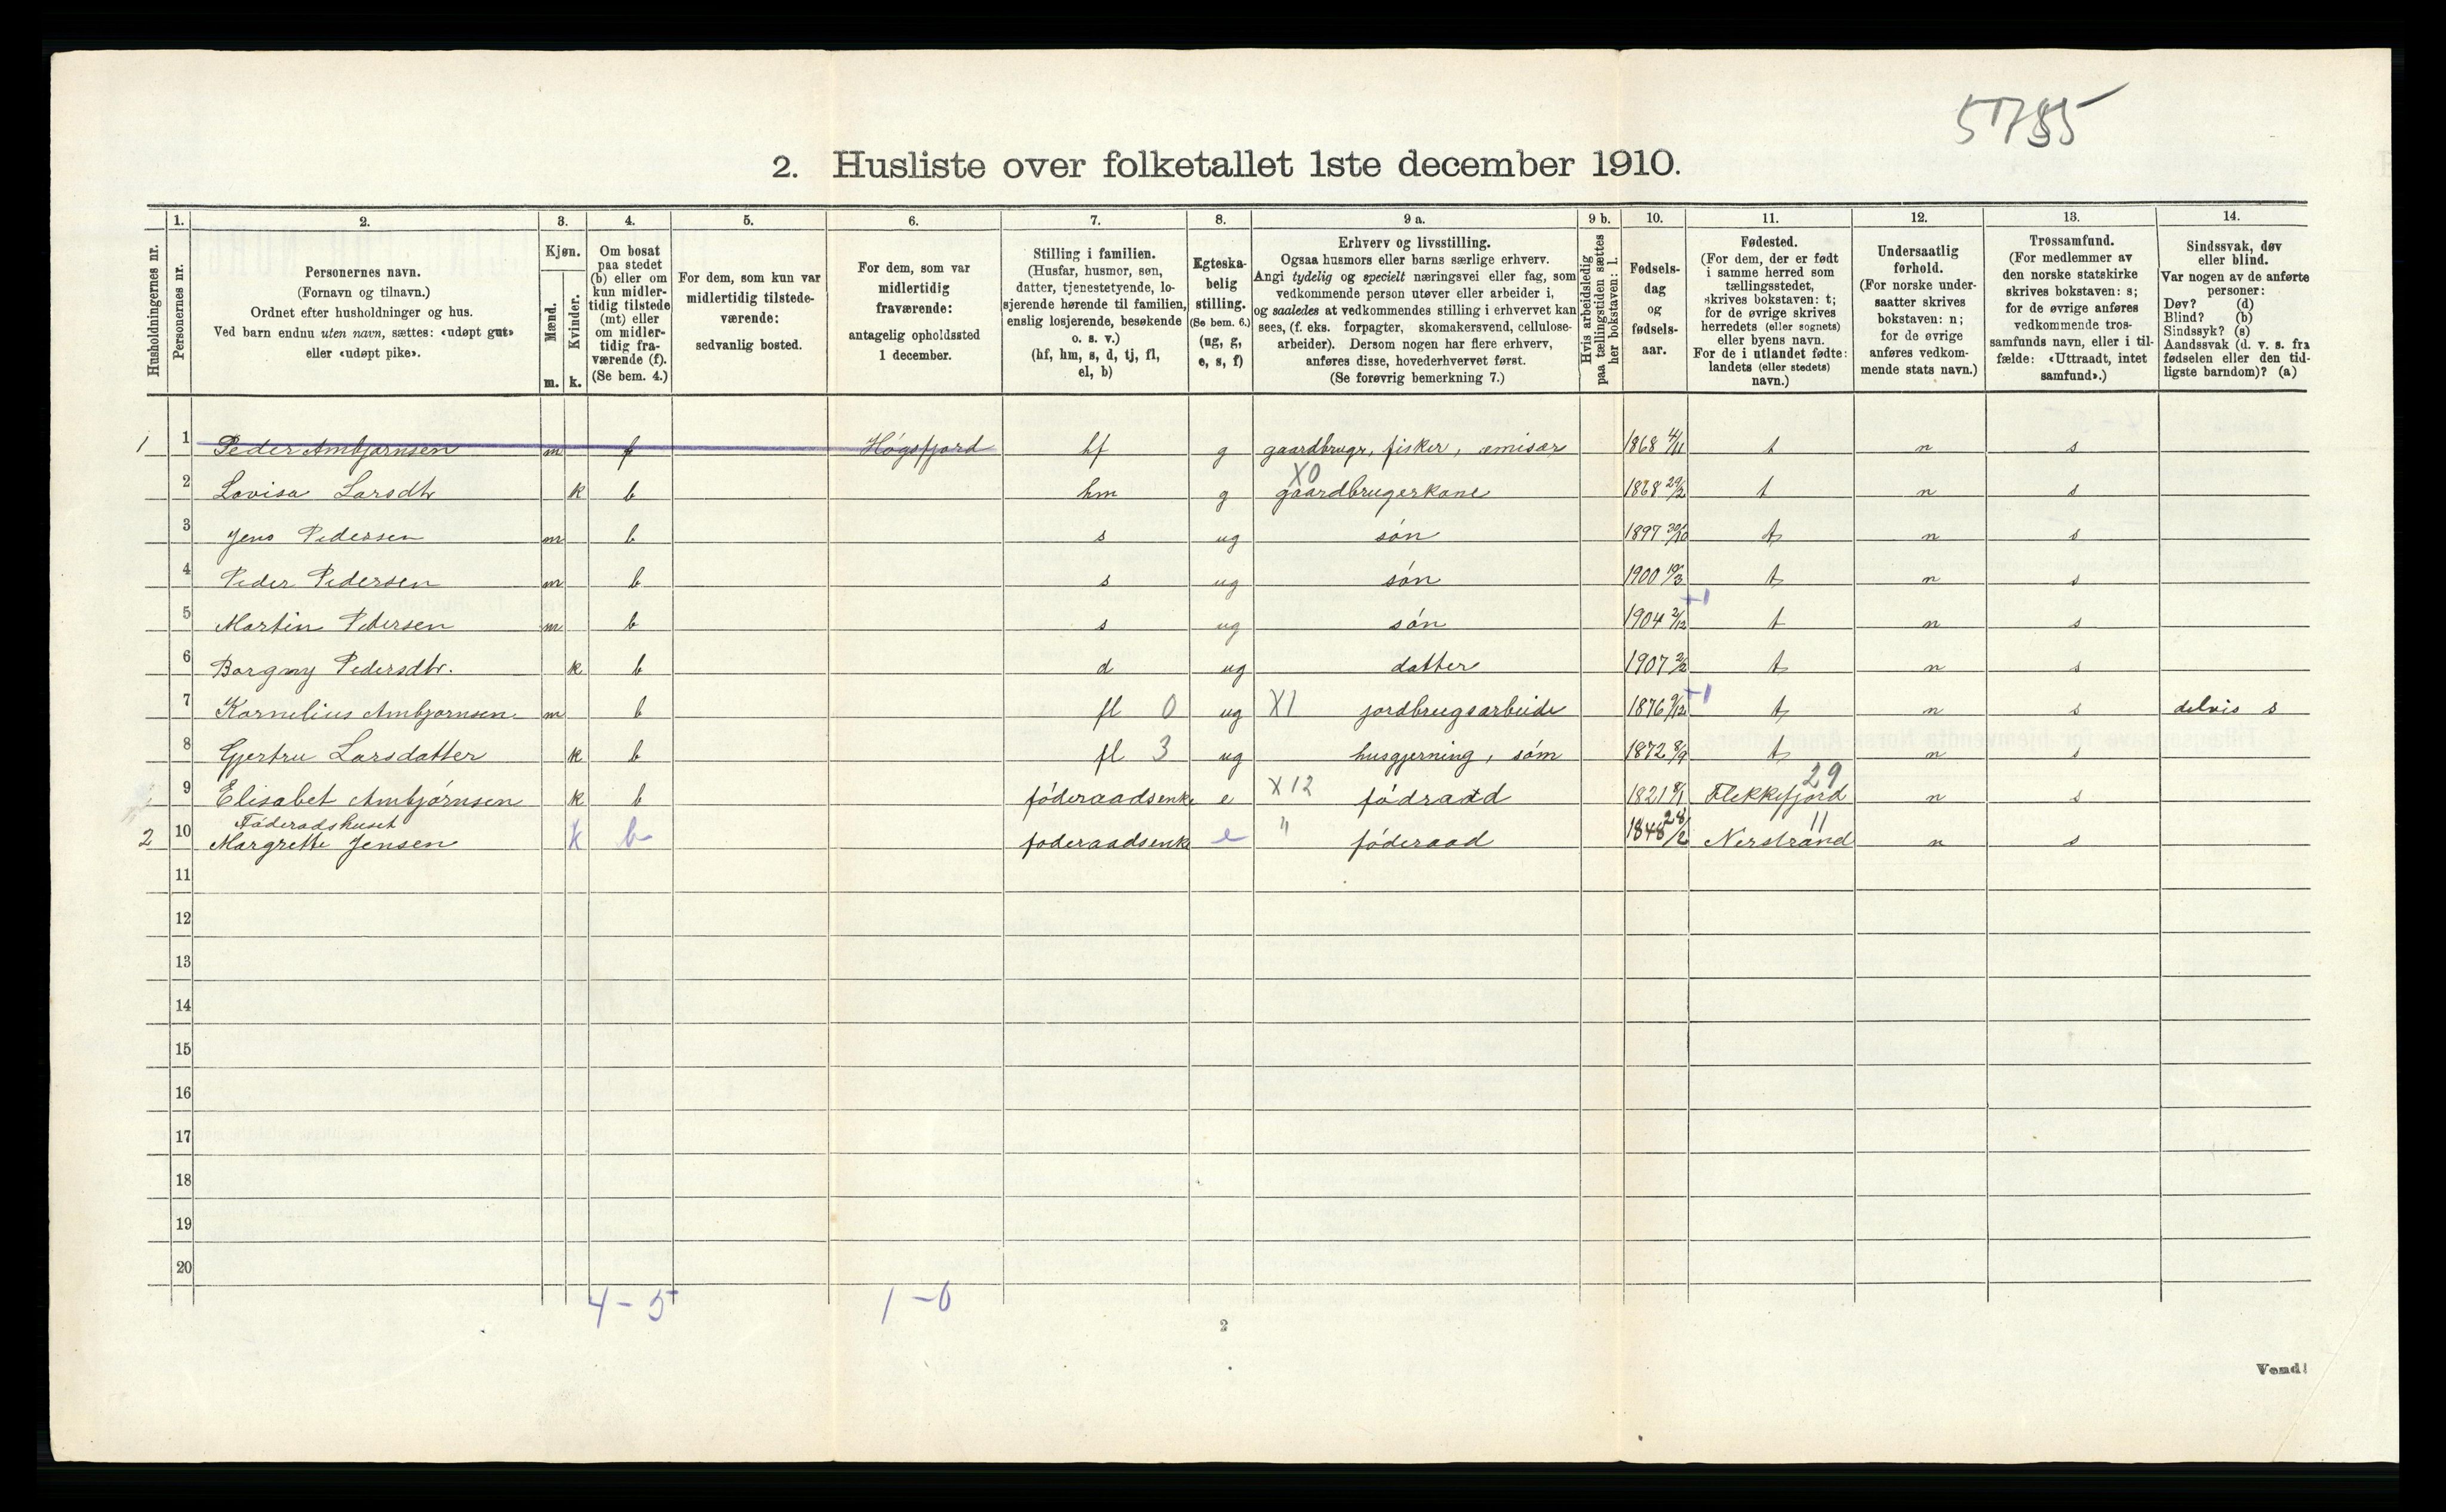 5785
2. Husliste over folketallet 1ste december 1910.
Husholdningernes nr.
1.
Personernes nr.
2.
Personernes navn.
(Fornavn og tilnavn.)
Ordnet efter husholdninger og hus.
Ved barn endnu uten navn, sættes: «udøpt gut»
eller «udøpt pike».
3.
Kjøn.
Mænd.
m.
Kvinder.
k.
4.
Om bosat
paa stedet
(b) eller om
kun midler-
tidig tilstede
(mt) eller
om midler-
tidig fra-
værende (f).
(Se bem. 4.)
5.
For dem, som kun var
midlertidig tilstede-
værende:
sedvanlig bosted.
6.
For dem, som var
midlertidig
fraværende:
antagelig opholdssted
1 december.
7.
Stilling i familien.
(Husfar, husmor, søn,
datter, tjenestetyende, lo-
sjerende hørende til familien,
enslig losjerende, besøkende
o. s. v.)
(hf, hm, s, d, tj, fl,
el, b)
8.
Egteska-
belig
stilling.
(Se bem. 6.)
(ug, g,
e, s, f)
9 a.
Erhverv og livsstilling.
Ogsaa husmors eller barns særlige erhverv.
Angi tydelig og specielt næringsvei eller fag, som
vedkommende person utøver eller arbeider i,
og saaledes at vedkommendes stilling i erhvervet kan
sees, (f. eks. forpagter, skomakersvend, cellulose-
arbeider). Dersom nogen har flere erhverv,
anføres disse, hovederhvervet først.
(Se forøvrig bemerkning 7.)
9 b.
Hvis arbeidsledig
paa tællingstiden sættes
her bokstaven: l.
10.
Fødsels-
dag
og
fødsels-
aar.
11.
Fødested.
(For dem, der er født
i samme herred som
tællingsstedet,
skrives bokstaven: t;
for de øvrige skrives
herredets (eller sognets)
eller byens navn.
For de i utlandet fødte:
landets (eller stedets)
navn.)
12.
Undersaatlig
forhold.
(For norske under-
saatter skrives
bokstaven: n;
for de øvrige
anføres vedkom-
mende stats navn.)
13.
Trossamfund.
(For medlemmer av
den norske statskirke
skrives bokstaven: s;
for de øvrige anføres
vedkommende tros-
samfunds navn, eller i til-
fælde: «Uttraadt, intet
samfund».)
14.
Sindssvak, døv
eller blind.
Var nogen av de anførte
personer:
Døv? (d)
Blind? (b)
Sindssyk? (s)
Aandssvak (d. v. s. fra
fødselen eller den tid-
ligste barndom)? (a)
1 1 Peder Ambjørnsen m f Høgsfjord hf g gaardbrugr, fisker, emisær 1868 4/11 t n s
2 Lovisa Larsdtr k b hm g X0 gaardbrugerkone 1868 29/2 t n s
3 Jens Pedersen m b s ug søn 1897 30/10 t n s
4 Peder Pedersen m b s ug søn 1900 19/3 t n s
5 Martin Pedersen m b s ug søn 1904 2/12 +1 t n s
6 Borgny Pedersdtr. k b d ug datter 1907 2/2 t n s
7 Kornelius Ambjørnsen m b fl 0 ug X1 jordbrugsarbeide 1876 9/12 +1 t n s delvis s
8 Gjertru Larsdatter k b fl 3 ug husgjerning, søm 1872 8/9 t n s
9 Elisabet Ambjørnsen k b føderaadsenke e X12 fødraad 1821 8/1 Flekkefjord 29 n s
Føderadshuset
2 10 Margrette Jensen k b føderaadsenk e " føderaad 1848 28/2 Nerstrand 11 n s
11
12
13
14
15
16
17
18
19
20
4-5 1-0
2
Vend!